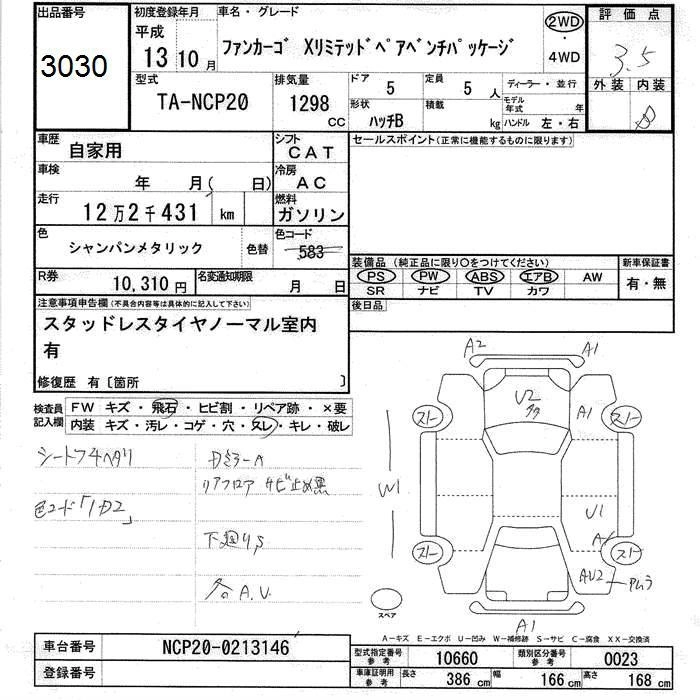 出品番号
3030
初度登録年月
平成
13 10 月
車名・グレード
ファンカーゴ Xリミテッド"ペアベンチパッケージ
2WD
・
4WD
評価点
3.5
外装 内装
B
型式
TA-NCP20
排気量
1298
CC
ドア
5
形状
ハッチB
定員
5 人
積載
kg
ディーラー・並行
モデル年式 年
ハンドル 左・右
車歴
自家用
シフト
CAT
車検
年 月( 日)
冷房
AC
走行
12万2千431 km
燃料
ガソリン
色
シャンパンメタリック
色替
色コード
583
R券
10,310 円
名変通知期限
月 日
セールスポイント(正常に機能するものに限ります)
装備品 (純正品に限り〇をつけてください)
PS PW ABS エアB AW
SR ナビ TV カワ
新車保証書
有・無
後日品
注意事項申告欄(不具合内容等は具体的に記入して下さい)
スタッドレスタイヤノーマル室内
有
修復歴 有〔箇所 〕
検査員
記入欄
FW キズ・飛石・ヒビ割・リペア跡・×要
内装 キズ・汚レ・コゲ・穴・ヌレ・キレ・破レ
シートフ4ヘタリ
色コード「1D2」
DミラーA
リアフロア サビ止め黒
下廻りS
各A.U.
A2
A1
U2
スト
A1
スト
W1
U1
A1
スト
スト
AU2
スペア
A1
A−キズ E−エクボ U−凹み W−補修跡 S−サビ C−腐食 XX−交換済
車台番号
NCP20-0213146
登録番号
型式指定番号
参考
10660
類別区分番号
参考
0023
車庫証明用
参考
長さ 386 cm
幅 166 cm
高さ 168 cm